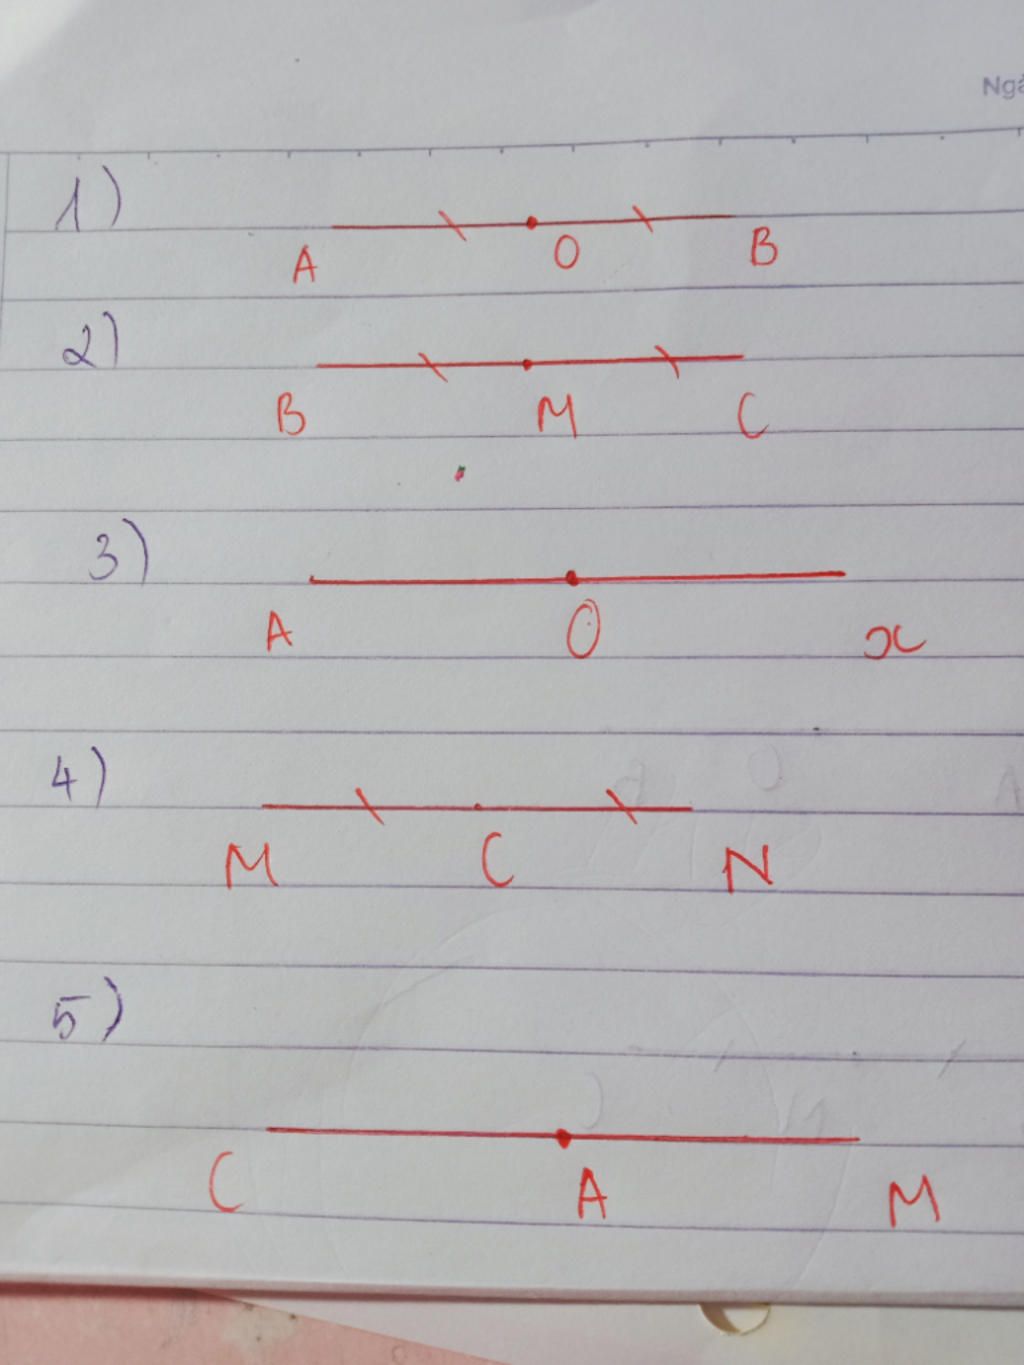 Ngà
1)
A O B
2)
B M C
3)
A O x
4)
M C N
5)
C A M